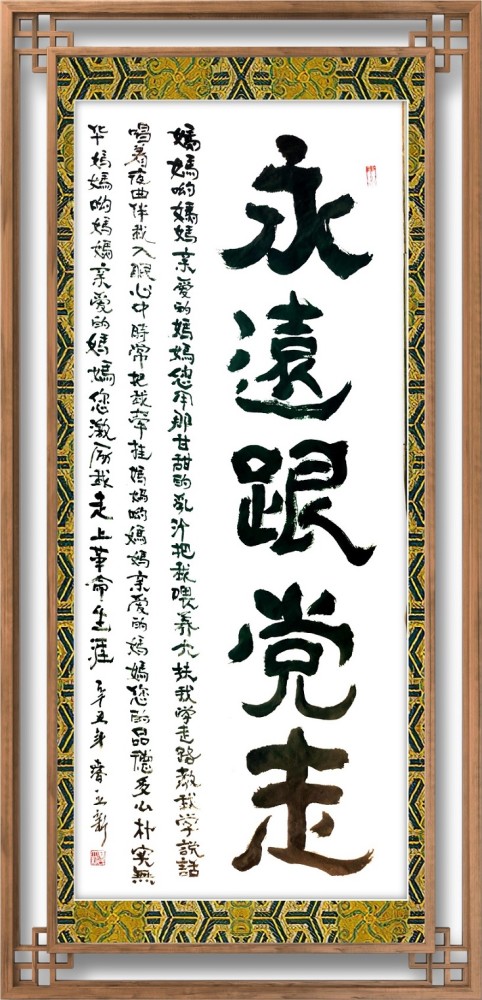 永遠跟党走
媽媽哟媽媽亲愛的媽媽您用那甘甜的乳汁把我喂养大扶我学走路教我学説話
唱着夜曲伴我入眠心中時常把我牵挂媽媽哟媽媽亲愛的媽媽您的品德多么朴实無
华媽媽哟媽媽亲愛的媽媽您激励我走上革命生涯 辛丑年